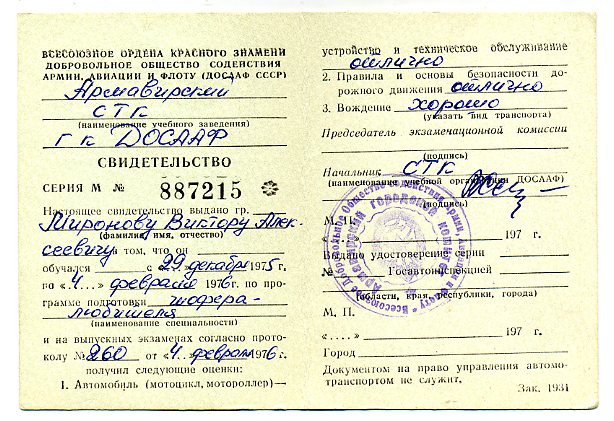 ВСЕСОЮЗНОЕ ОРДЕНА КРАСНОГО ЗНАМЕНИ
ДОБРОВОЛЬНОЕ ОБЩЕСТВО СОДЕЙСТВИЯ
АРМИИ, АВИАЦИИ И ФЛОТУ (ДОСААФ СССР)
Армавирский
СТК
(наименование учебного заведения)
ГК ДОСААФ
СВИДЕТЕЛЬСТВО
СЕРИЯ М № 887215
Настоящее свидетельство выдано гр.
Миронову Виктору Алек-
(фамилия, имя, отчество)
сеевичу в том, что он
обучался с 29 декабря 1975 г.
по «4...» февраля 1976 г. по про-
грамме подготовки шофера-
любителя
(наименование специальности)
и на выпускных экзаменах согласно прото-
колу № 260 от «4.» феврал 1976 г.
получил следующие оценки:
1. Автомобиль (мотоцикл, мотороллер)—
устройство и техническое обслуживание
отлично
2. Правила и основы безопасности до-
рожного движения отлично
3. Вождение хорошо
(указать вид транспорта)
Председатель экзаменационной комиссии
(подпись)
Начальник СТК
(наименование учебной организации ДОСААФ)
(подпись)
М. П.
197 г.
Выдано удостоверение серии
№ Госавтоинспекцией
(области, края, республики, города)
М. П.
«....» 197 г.
Город
Документом на право управления автомо-
транспортом не служит.
Зак. 1931